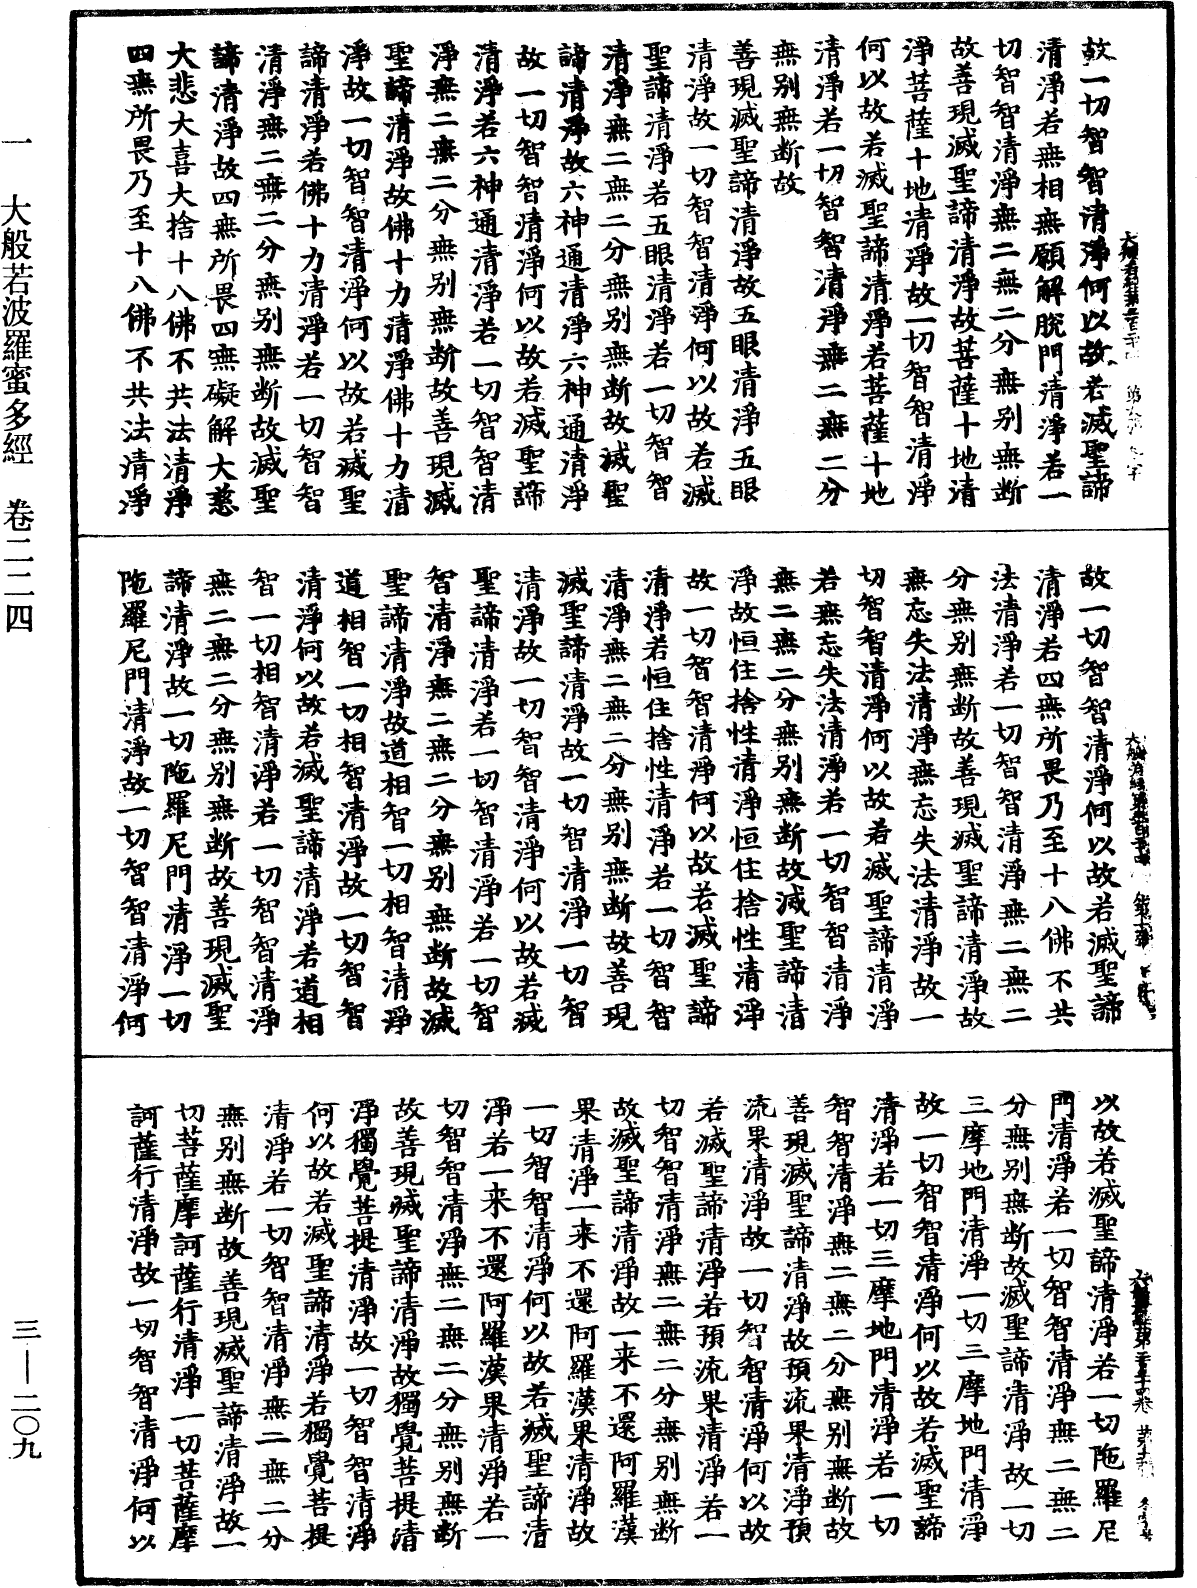 故一切智智清淨何以故若滅聖諦
清淨若無相無願解脫門清淨若一
切智智清淨無二無二分無別無断
故善現滅聖諦清淨故菩薩十地清
淨菩薩十地清淨故一切智智清淨
何以故若滅聖諦清淨若菩薩十地
清淨若一切智智清淨無二無二分
無別無断故
善現滅聖諦清淨故五眼清淨五眼
清淨故一切智智清淨何以故若滅
聖諦清淨若五眼清淨若一切智智
清淨無二無二分無別無断故滅聖
諦清淨故六神通清淨六神通清淨
故一切智智清淨何以故若滅聖諦
清淨若六神通清淨若一切智智清
淨無二無二分無別無断故善現滅
聖諦清淨故佛十力清淨佛十力清
淨故一切智智清淨何以故若滅聖
諦清淨若佛十力清淨若一切智智
清淨無二無二分無別無断故滅聖
諦清淨故四無所畏四無礙解大慈
大悲大喜大捨十八佛不共法清淨
四無所畏乃至十八佛不共法清淨
故一切智智清淨何以故若滅聖諦
清淨若四無所畏乃至十八佛不共
法清淨若一切智智清淨無二無二
分無別無断故善現滅聖諦清淨故
無忘失法清淨無忘失法清淨故一
切智智清淨何以故若滅聖諦清淨
若無忘失法清淨若一切智智清淨
無二無二分無別無断故滅聖諦清
淨故恒住捨性清淨恒住捨性清淨
故一切智智清淨何以故若滅聖諦
清淨若恒住捨性清淨若一切智智
清淨無二無二分無別無断故善現
滅聖諦清淨故一切智清淨一切智
清淨故一切智智清淨何以故若滅
聖諦清淨若一切智清淨若一切智
智清淨無二無二分無別無断故滅
聖諦清淨故道相智一切相智清淨
道相智一切相智清淨故一切智智
清淨何以故若滅聖諦清淨若道相
智一切相智清淨若一切智智清淨
無二無二分無別無断故善現滅聖
諦清淨故一切陁羅尼門清淨一切
陁羅尼門清淨故一切智智清淨何
以故若滅聖諦清淨若一切陁羅尼
門清淨若一切智智清淨無二無二
分無別無断故滅聖諦清淨故一切
三摩地門清淨一切三摩地門清淨
故一切智智清淨何以故若滅聖諦
清淨若一切三摩地門清淨若一切
智智清淨無二無二分無別無断故
善現滅聖諦清淨故預流果清淨預
流果清淨故一切智智清淨何以故
若滅聖諦清淨若預流果清淨若一
切智智清淨無二無二分無別無断
故滅聖諦清淨故一来不還阿羅漢
果清淨一来不還阿羅漢果清淨故
一切智智清淨何以故若滅聖諦清
淨若一来不還阿羅漢果清淨若一
切智智清淨無二無二分無別無断
故善現滅聖諦清淨故獨覺菩提清
淨獨覺菩提清淨故一切智智清淨
何以故若滅聖諦清淨若獨覺菩提
清淨若一切智智清淨無二無二分
無別無断故善現滅聖諦清淨故一
切菩薩摩訶薩行清淨一切菩薩摩
訶薩行清淨故一切智智清淨何以
一 大般若波羅蜜多經 卷二二四
三—二〇九